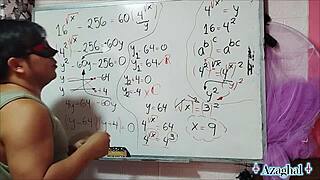 16^√x - 256 = 60(4^√x)
y² - 256 = 60y
y² - 60y - 256 = 0
y -64
y +4
4y - 64y = -60y
(y - 64)(y + 4) = 0
y - 64 = 0
y = 64
y + 4 = 0
y = -4
y = 64
4^√x = 64
4^√x = 4³
4^√x = y
16 = 4²
a^(b^c) = a^bc
4^2√x = (4^√x)²
y²
(√x)² = 3²
x = 9
Azaghal